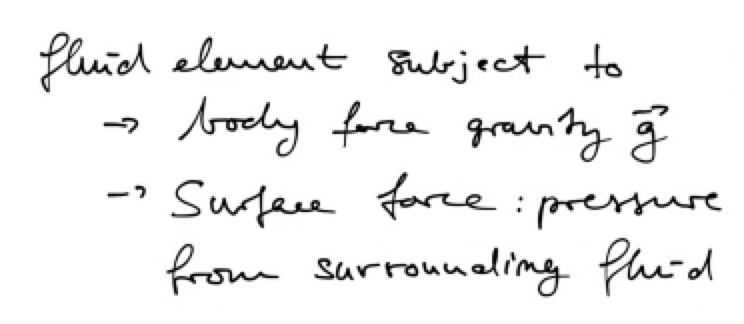 fluid element subject to
→ body force gravity \vec{g}
→ Surface force : pressure
from surrounding fluid